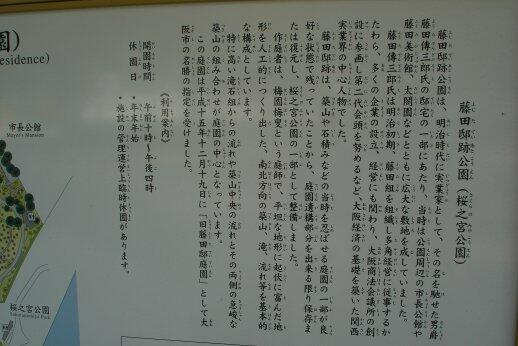 藤田邸跡公園（桜之宮公園）
藤田邸跡公園は、明治時代に実業家として、その名を馳せた男爵
藤田傳三郎氏の邸宅の一部にあたり、当時は公園周辺の市長公館や
藤田美術館、太閤園などとともに広大な敷地を成していました。
藤田傳三郎氏は明治初期、藤田組を組織し多角経営に従事するか
たわら、多くの企業の設立、経営にも関わり、大阪商法会議所の創
設に参画し第二代会頭を努めるなど大阪経済の基礎を築いた関西
実業界の中心人物でした。
藤田邸跡は、築山や石積みなどの当時を忍ばせる庭園の一部が良
好な状態で残っていたことから、庭園遺構部分を出来る限り保存ま
たは復元し、桜之宮公園の一部として整備しました。
作庭者は、梅園梅叟という庭師で、平坦な地形に起伏に富んだ地
形を人工的につくり出した、南北方向の築山、滝、流れ等を基本的
な構成としています。
特に高い滝石組からの流れや築山中央の流れとその両側の急峻な
築山の組み合わせが庭園の中心となっています。
この庭園は平成十五年十二月十九日に「旧藤田邸庭園」として大
阪市の名勝の指定を受けました。
《利用案内》
開園時間 午前十時～午後四時
休園日 ・年末年始
・施設の管理運営上臨時休園があります。
園)
esidence)
市長公館
Mayor's Mansion
桜之宮公園
Sakuranomiya Park